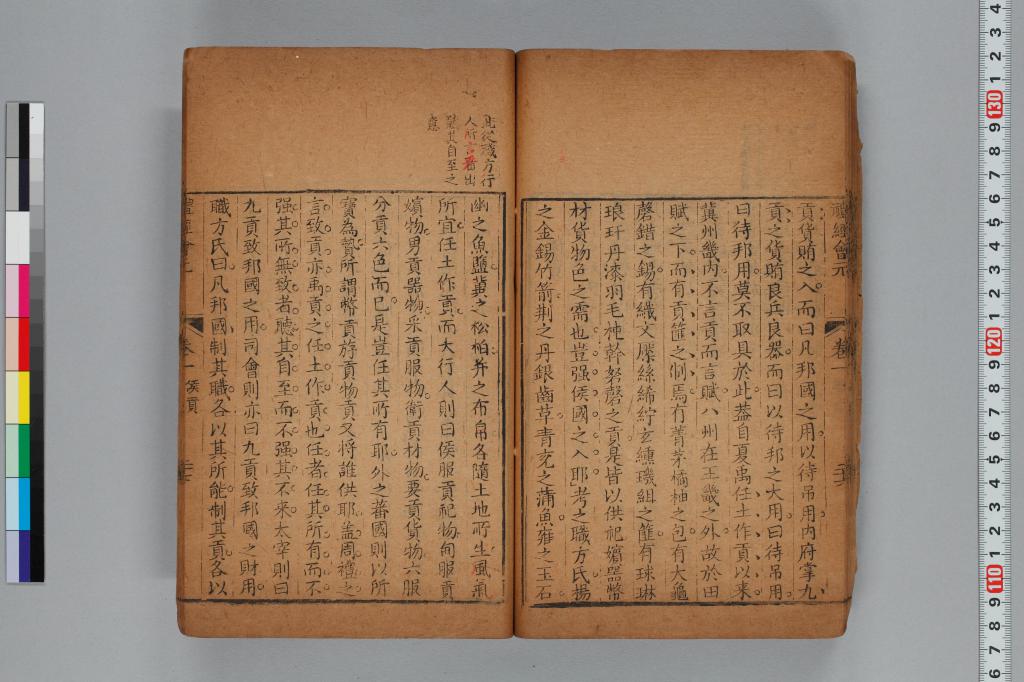 禮經會元
卷一
貢貨賄之入而曰凡邦國之用以待吊用内府掌九
貢之貨賄良兵良器而曰以待邦之大用曰待吊用
曰待邦用莫不取具於此蓋自夏禹任土作貢以來
冀州畿内不言貢而言賦八州在王畿之外故於田
賦之下而有貢篚之制焉有菁茅橘柚之包有大龜
磬錯之錫有織文厴絲絺紵玄纁璣組之篚有球琳
琅玕丹漆羽毛杶幹砮磬之貢是皆以供祀嬪器幣
材貨物色之需也豈强侯國之入耶考之職方氏揚
之金錫竹箭荆之丹銀齒革青兗之蒲魚雍之玉石
幽之魚鹽冀之松柏并之布帛各隨土地所生風氣
所宜任土作貢而大行人則曰侯服貢祀物甸服貢
嬪物男貢器物采貢服物衛貢材物要貢貨物六服
分貢六色而已是豈任其所有耶外之蕃國則以所
寶為贄所謂幣貢斿貢物貢又將誰供耶盖周禮之
言致貢亦禹貢之任土作貢也任者任其所有而不
强其所無致者聽其自至而不强其不來太宰則曰
九貢致邦國之用司會則亦曰九貢致邦國之財用
職方氏曰凡邦國制其職各以其所能制其貢各以
卷一 侯貢
見從殘方行
人所言看出
聽其自至之
意